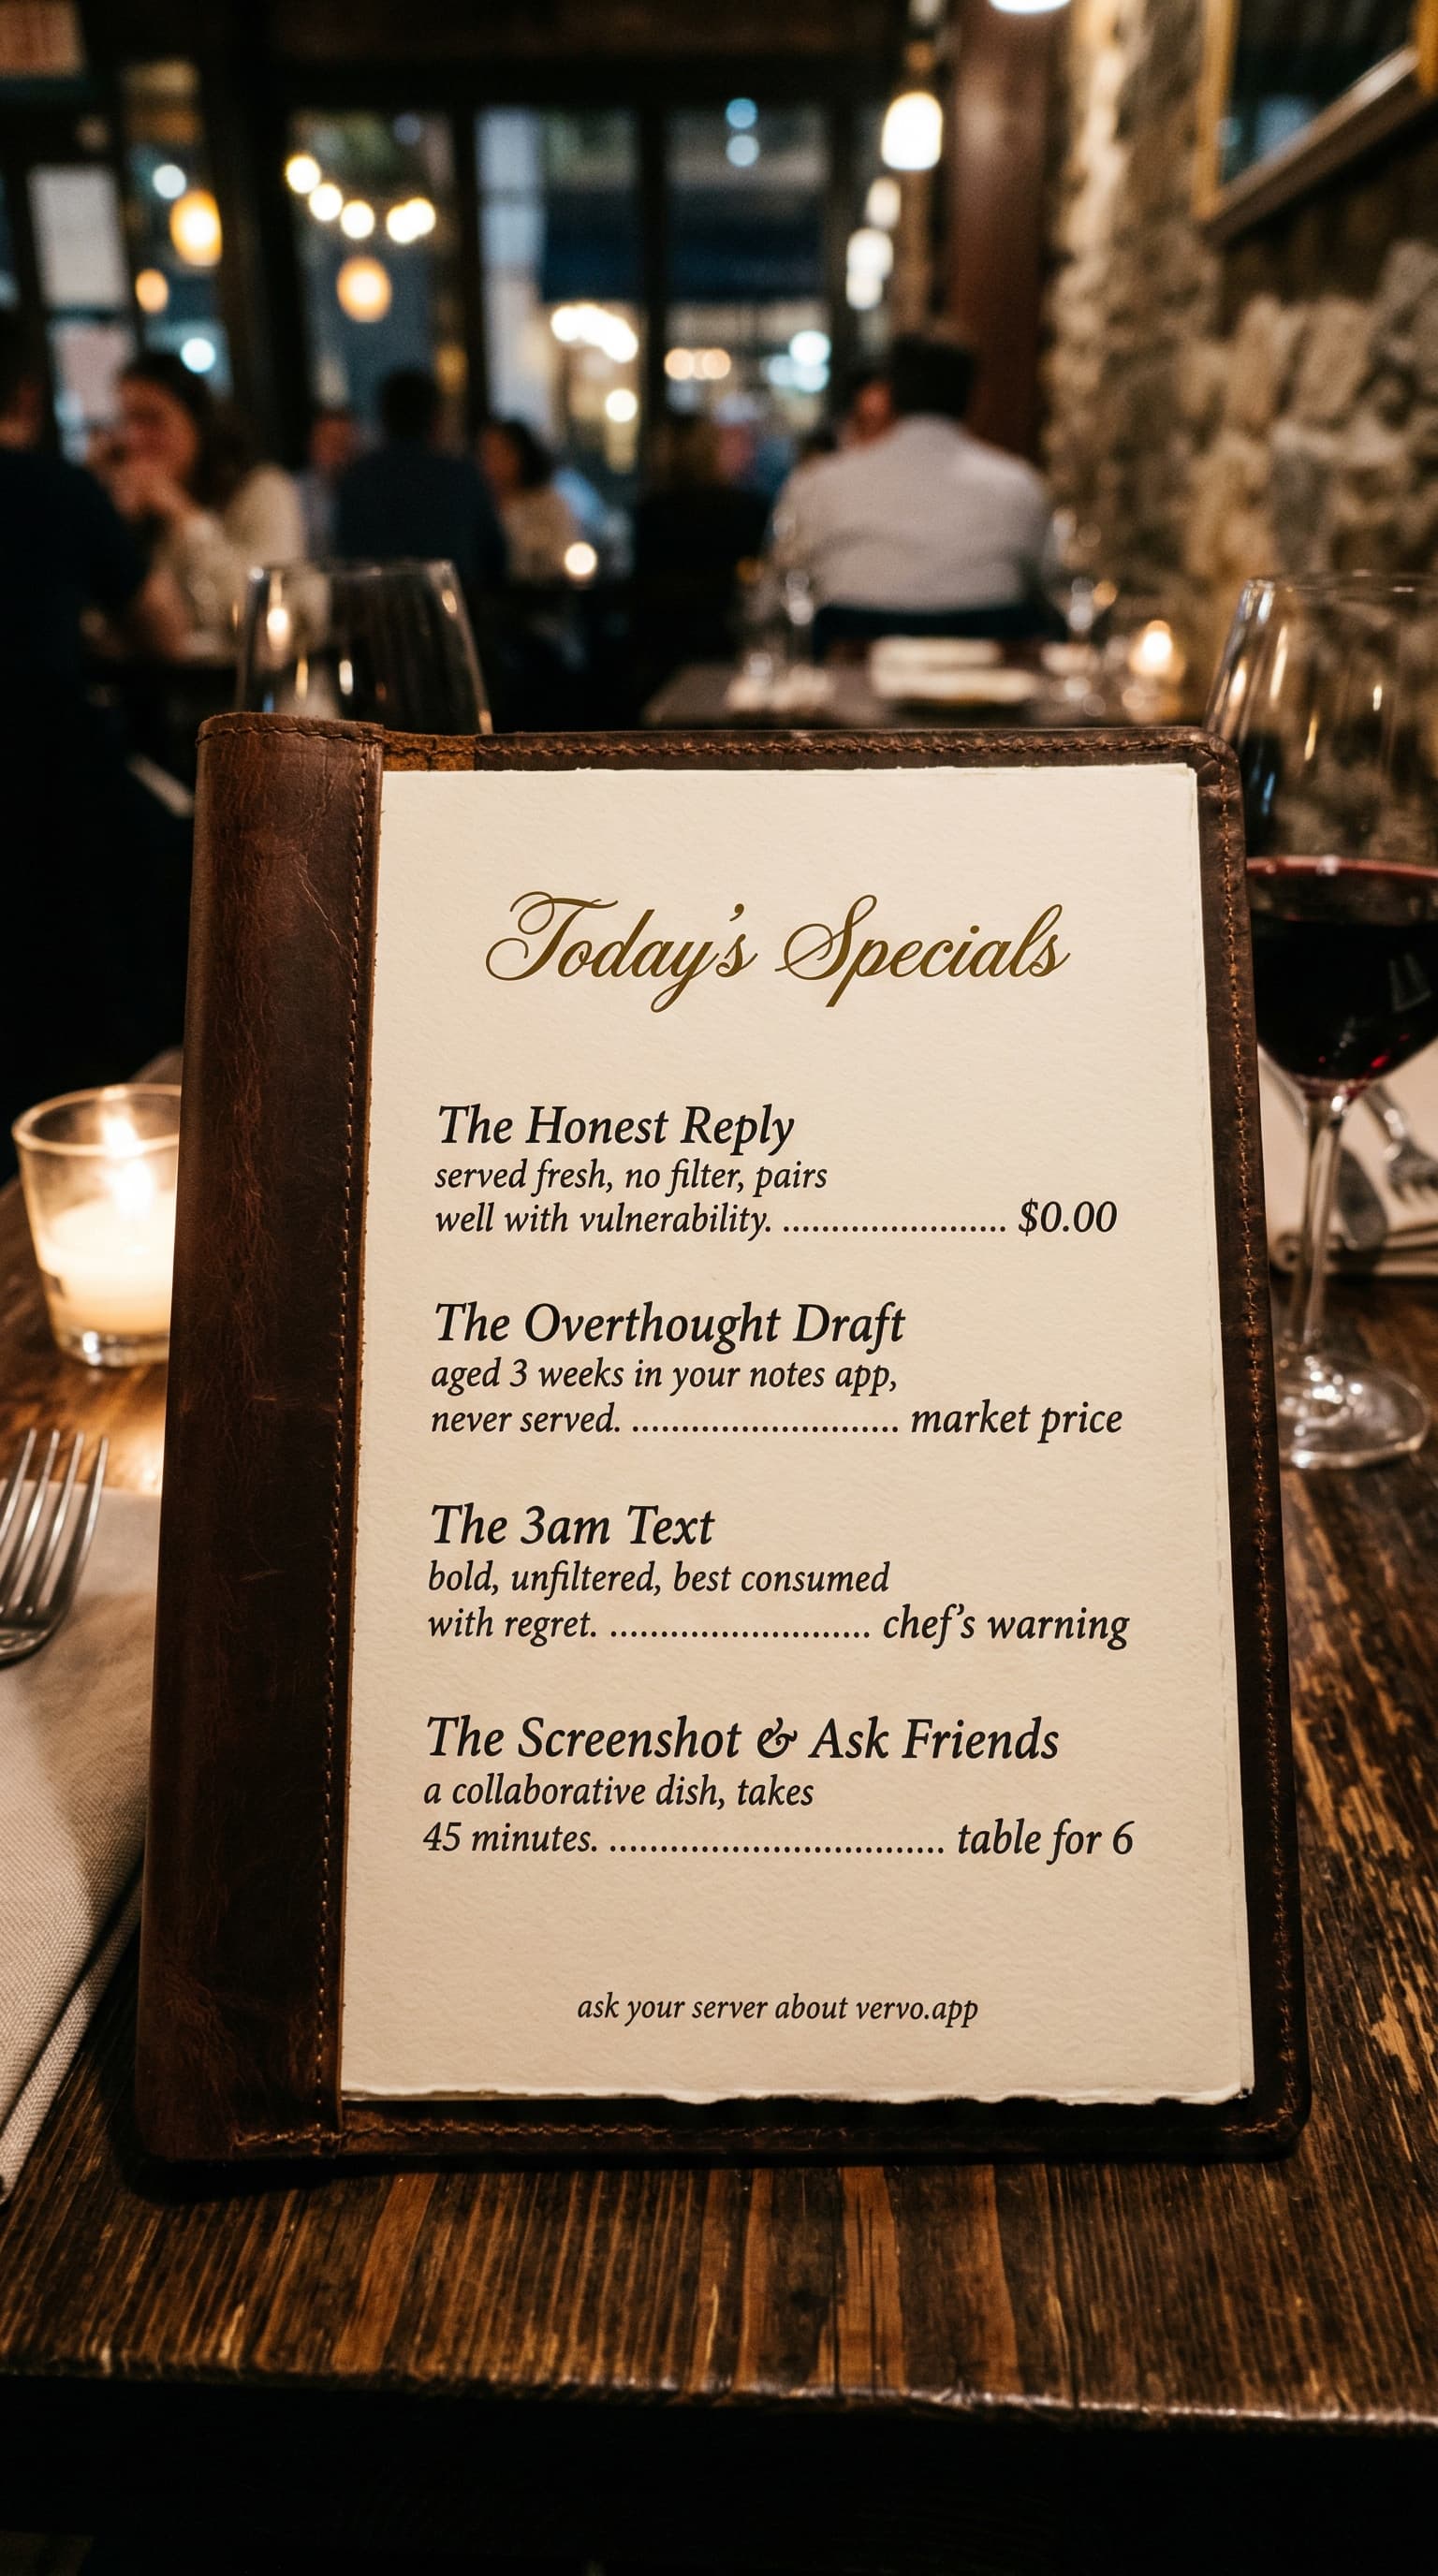 Today's Specials
The Honest Reply
served fresh, no filter, pairs
well with vulnerability. ....................... $0.00
The Overthought Draft
aged 3 weeks in your notes app,
never served. ........................... market price
The 3am Text
bold, unfiltered, best consumed
with regret. .......................... chef's warning
The Screenshot & Ask Friends
a collaborative dish, takes
45 minutes. .................................. table for 6
ask your server about vervo.app